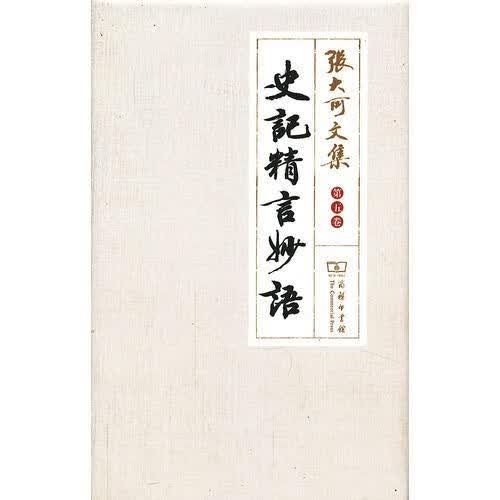 張大可文集
第五卷
史記精言妙語
商務印書館
The Commercial Press